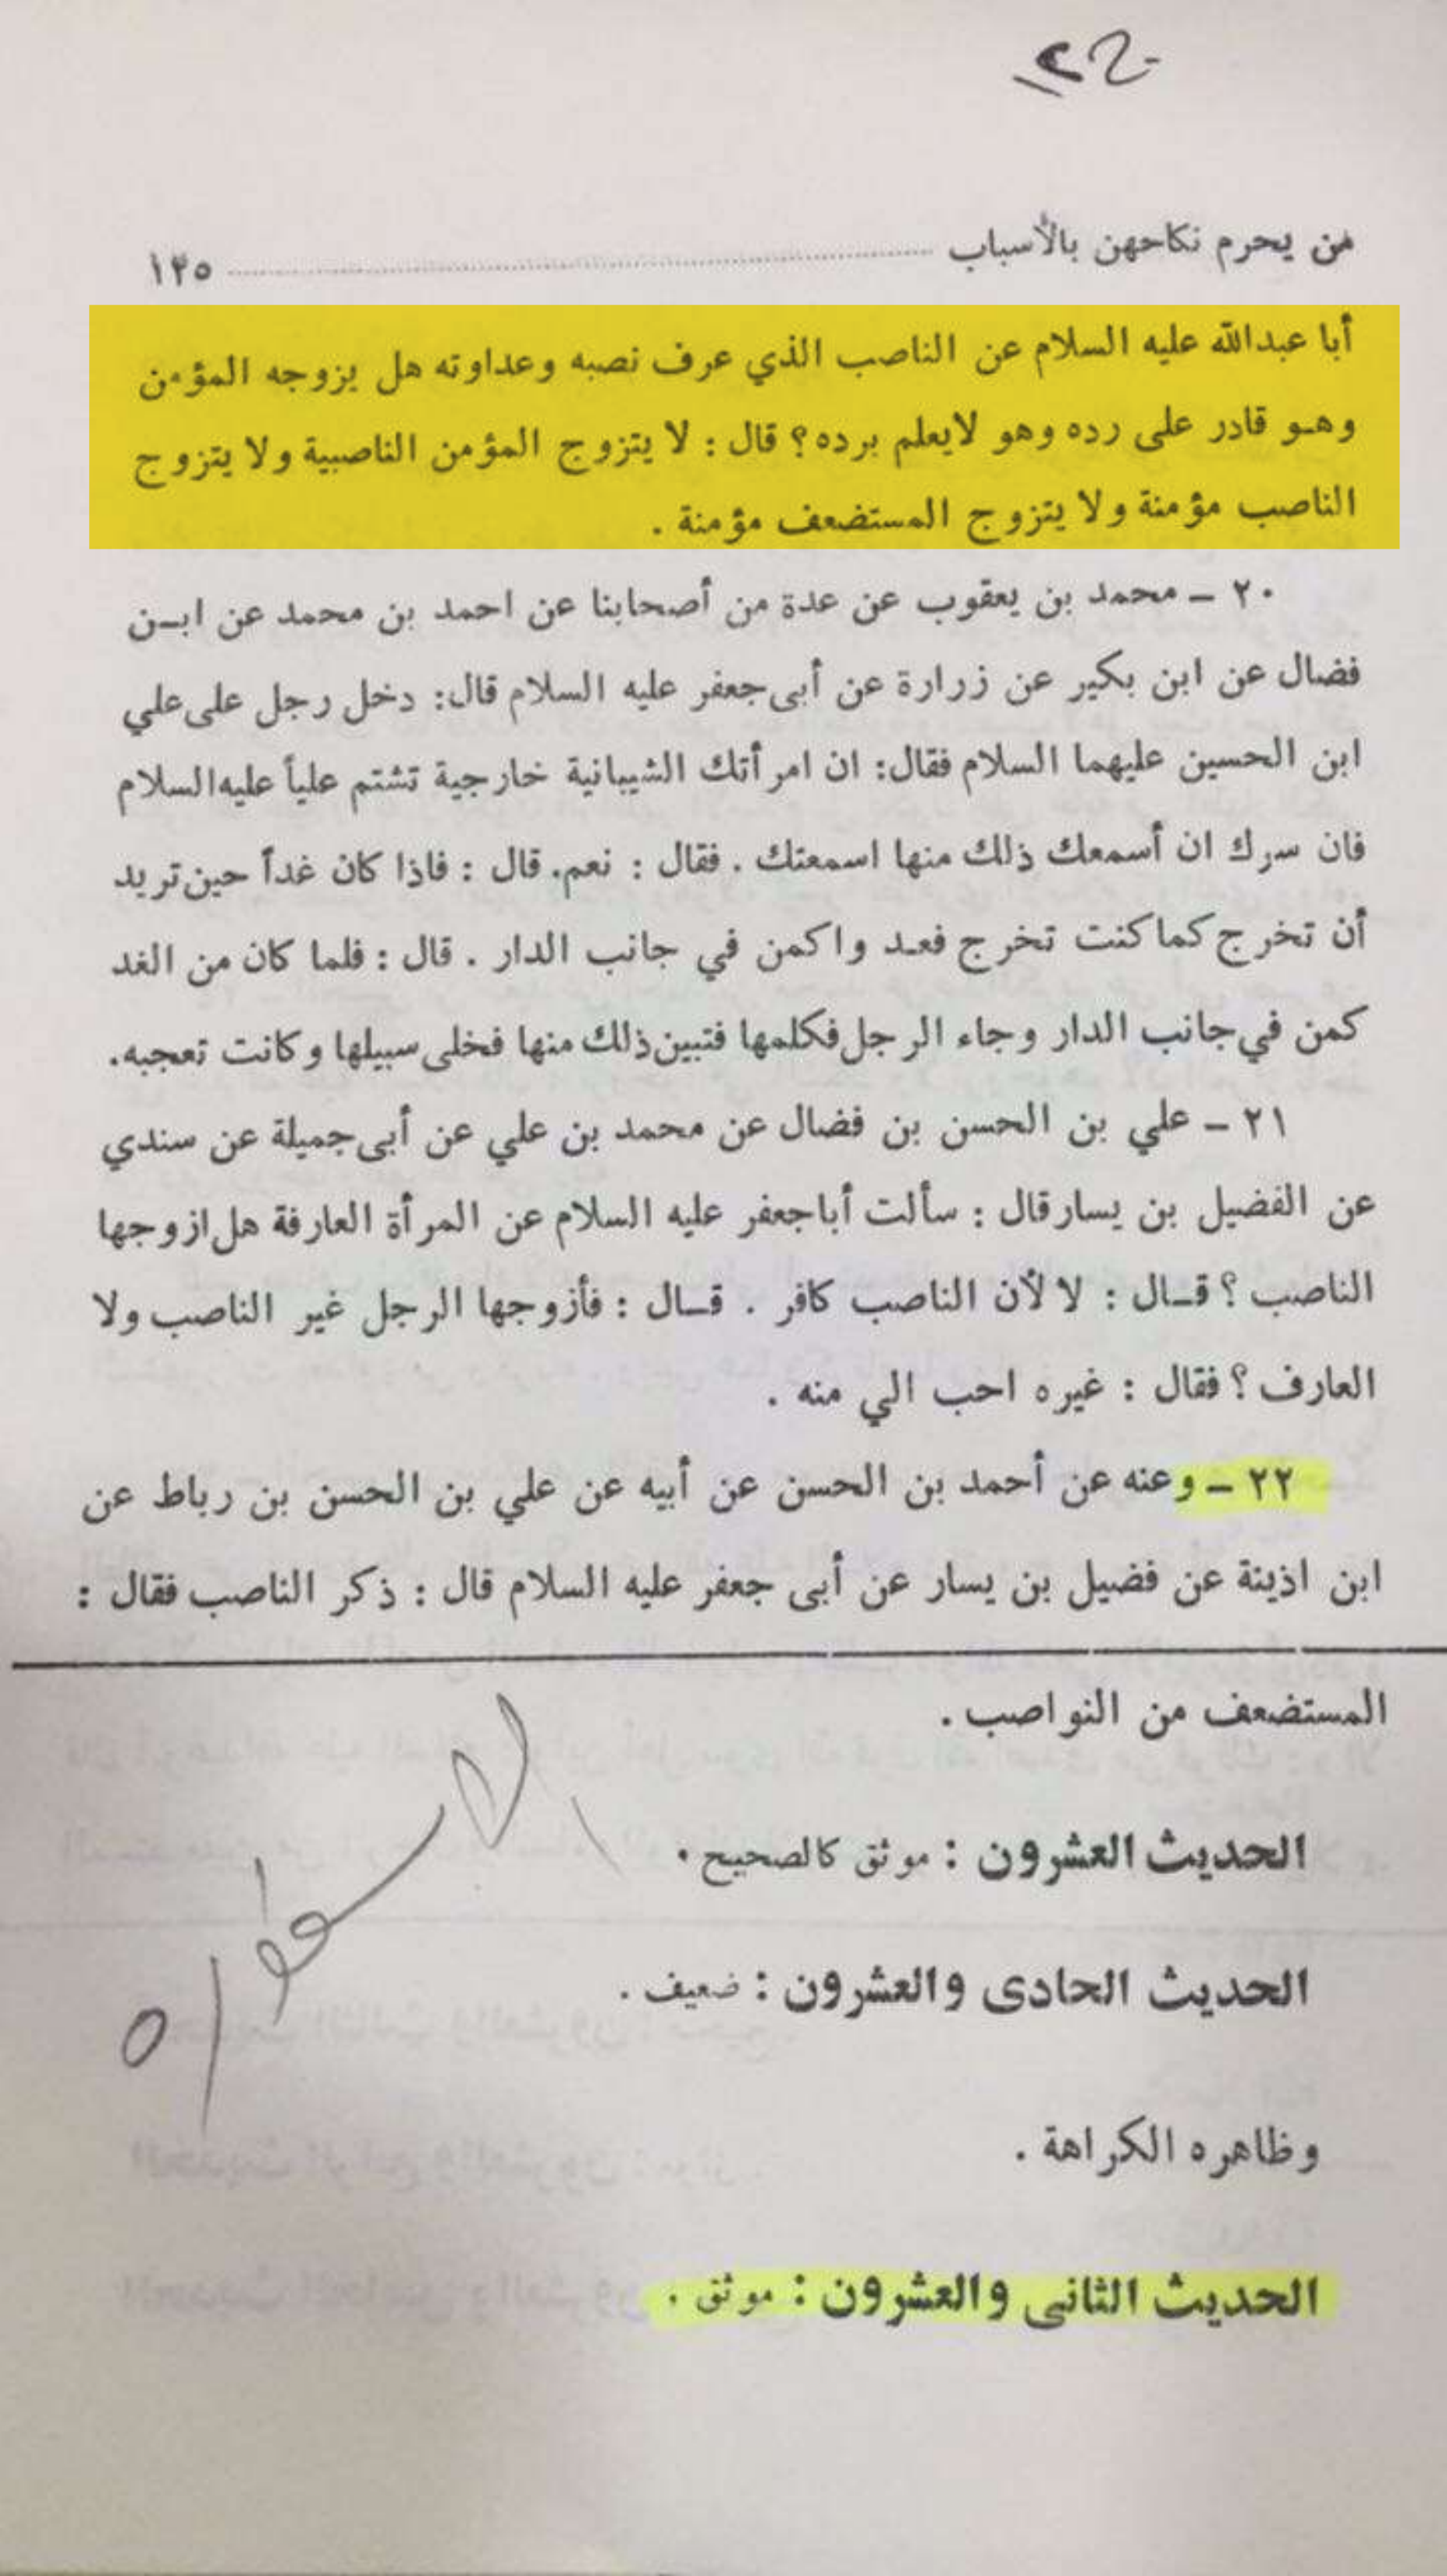 من يحرم نكاحهن بالأسباب ........ ١٢٥
أبا عبدالله عليه السلام عن الناصب الذي عرف نصبه وعداوته هل يزوجه المؤمن
وهو قادر على رده وهو لايعلم برده؟ قال : لا يتزوج المؤمن الناصبية ولا يتزوج
الناصب مؤمنة ولا يتزوج المستضعف مؤمنة .
٢٠ ــ محمد بن يعقوب عن عدة من أصحابنا عن احمد بن محمد عن ابن
فضال عن ابن بكير عن زرارة عن أبى جعفر عليه السلام قال: دخل رجل على علي
ابن الحسين عليهما السلام فقال: ان امرأتك الشيبانية خارجية تشتم علياً عليه السلام
فان سرك ان أسمعك ذلك منها اسمعتك . فقال : نعم. قال : فاذا كان غداً حين تريد
أن تخرج كما كنت تخرج فعد واكمن في جانب الدار . قال : فلما كان من الغد
كمن في جانب الدار وجاء الرجل فكلمها فتبين ذلك منها فخلى سبيلها وكانت تعجبه.
٢١ ــ علي بن الحسن بن فضال عن محمد بن علي عن أبى جميلة عن سندي
عن الفضيل بن يسار قال : سألت أبا جعفر عليه السلام عن المرأة العارفة هل ازوجها
الناصب ؟ قال : لا لأن الناصب كافر . قال : فأزوجها الرجل غير الناصب ولا
العارف ؟ فقال : غيره احب الي منه .
٢٢ ــ وعنه عن أحمد بن الحسن عن أبيه عن علي بن الحسن بن رباط عن
ابن اذينة عن فضيل بن يسار عن أبى جعفر عليه السلام قال : ذكر الناصب فقال :
المستضعف من النواصب .
الحديث العشرون : موثق كالصحيح .
الحديث الحادى والعشرون : ضعيف .
وظاهره الكراهة .
الحديث الثانى والعشرون : موثق .